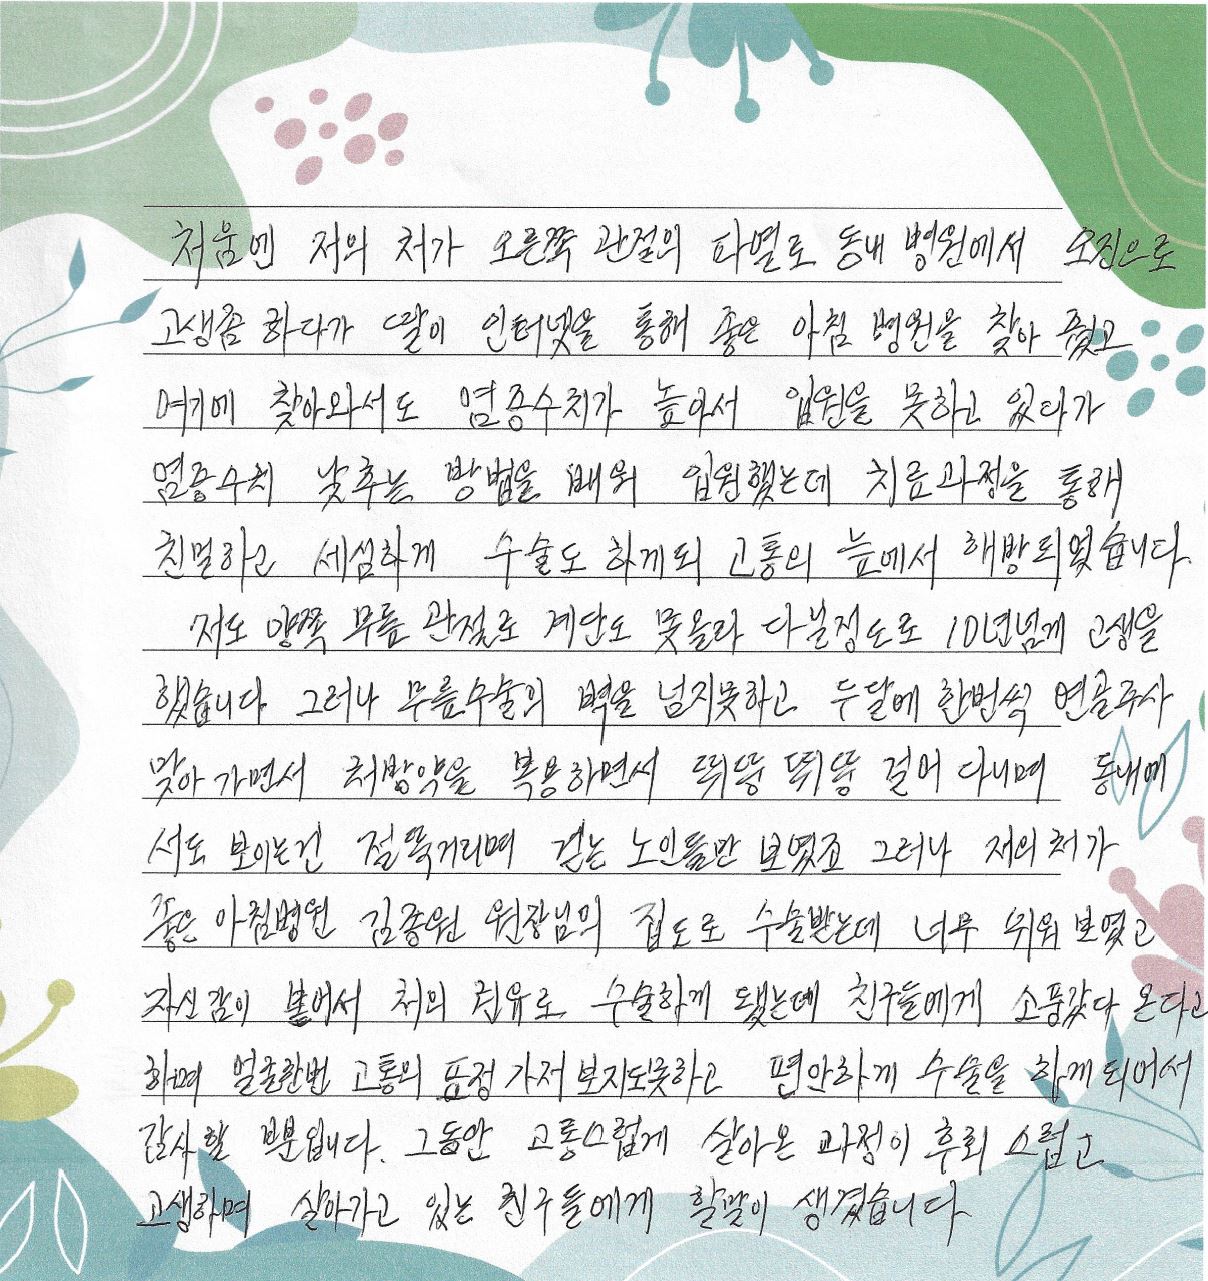 처음엔 저의 처가 오른쪽 관절의 파열로 동내 병원에서 오진으로
고생좀 하다가 딸이 인터넷을 통해 좋은 아침 병원을 찾아 줬고
여기에 찾아와서도 염증수치가 높아서 입원을 못하고 있다가
염증수치 낮추는 방법을 배워 입원했는데 치료과정을 통해
친절하고 세심하게 수술도 하게되 고통의 늪에서 해방되었습니다.
저도 양쪽 무릎 관절로 계단도 못올라 다닐정도로 10년넘게 고생을
했습니다 그러나 무릎수술의 벽을 넘지못하고 두달에 한번씩 연골주사
맞아 가면서 처방약을 복용하면서 뛰뚱 뛰뚱 걸어 다니며 동내에
서도 보이는건 절뚝거리며 걷는 노인들만 보였조 그러나 재의처가
좋은 아침병원 김종원 원장님의 집도로 수술받는데 너무 쉬워 보였고
자신감이 붙어서 처의 권유로 수술하게 됐는데 친구들에게 소풍갔다 온다고
하며 얼굴한번 고통의 표정 가저 보지도못하고 편안하게 수술을 하게되어서
감사할 뿐입니다. 그동안 고통스럽게 살아온 과정이 후회 스럽고
고생하며 살아가고 있는 친구들에게 할말이 생겼습니다